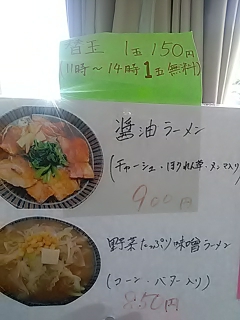 替玉 1玉 150円
(11時～14時 1玉無料)
醤油ラーメン
(チャーシュー・ほうれん草・メンマ入り)
900円
野菜たっぷり味噌ラーメン
(コーン・バター入り)
850円